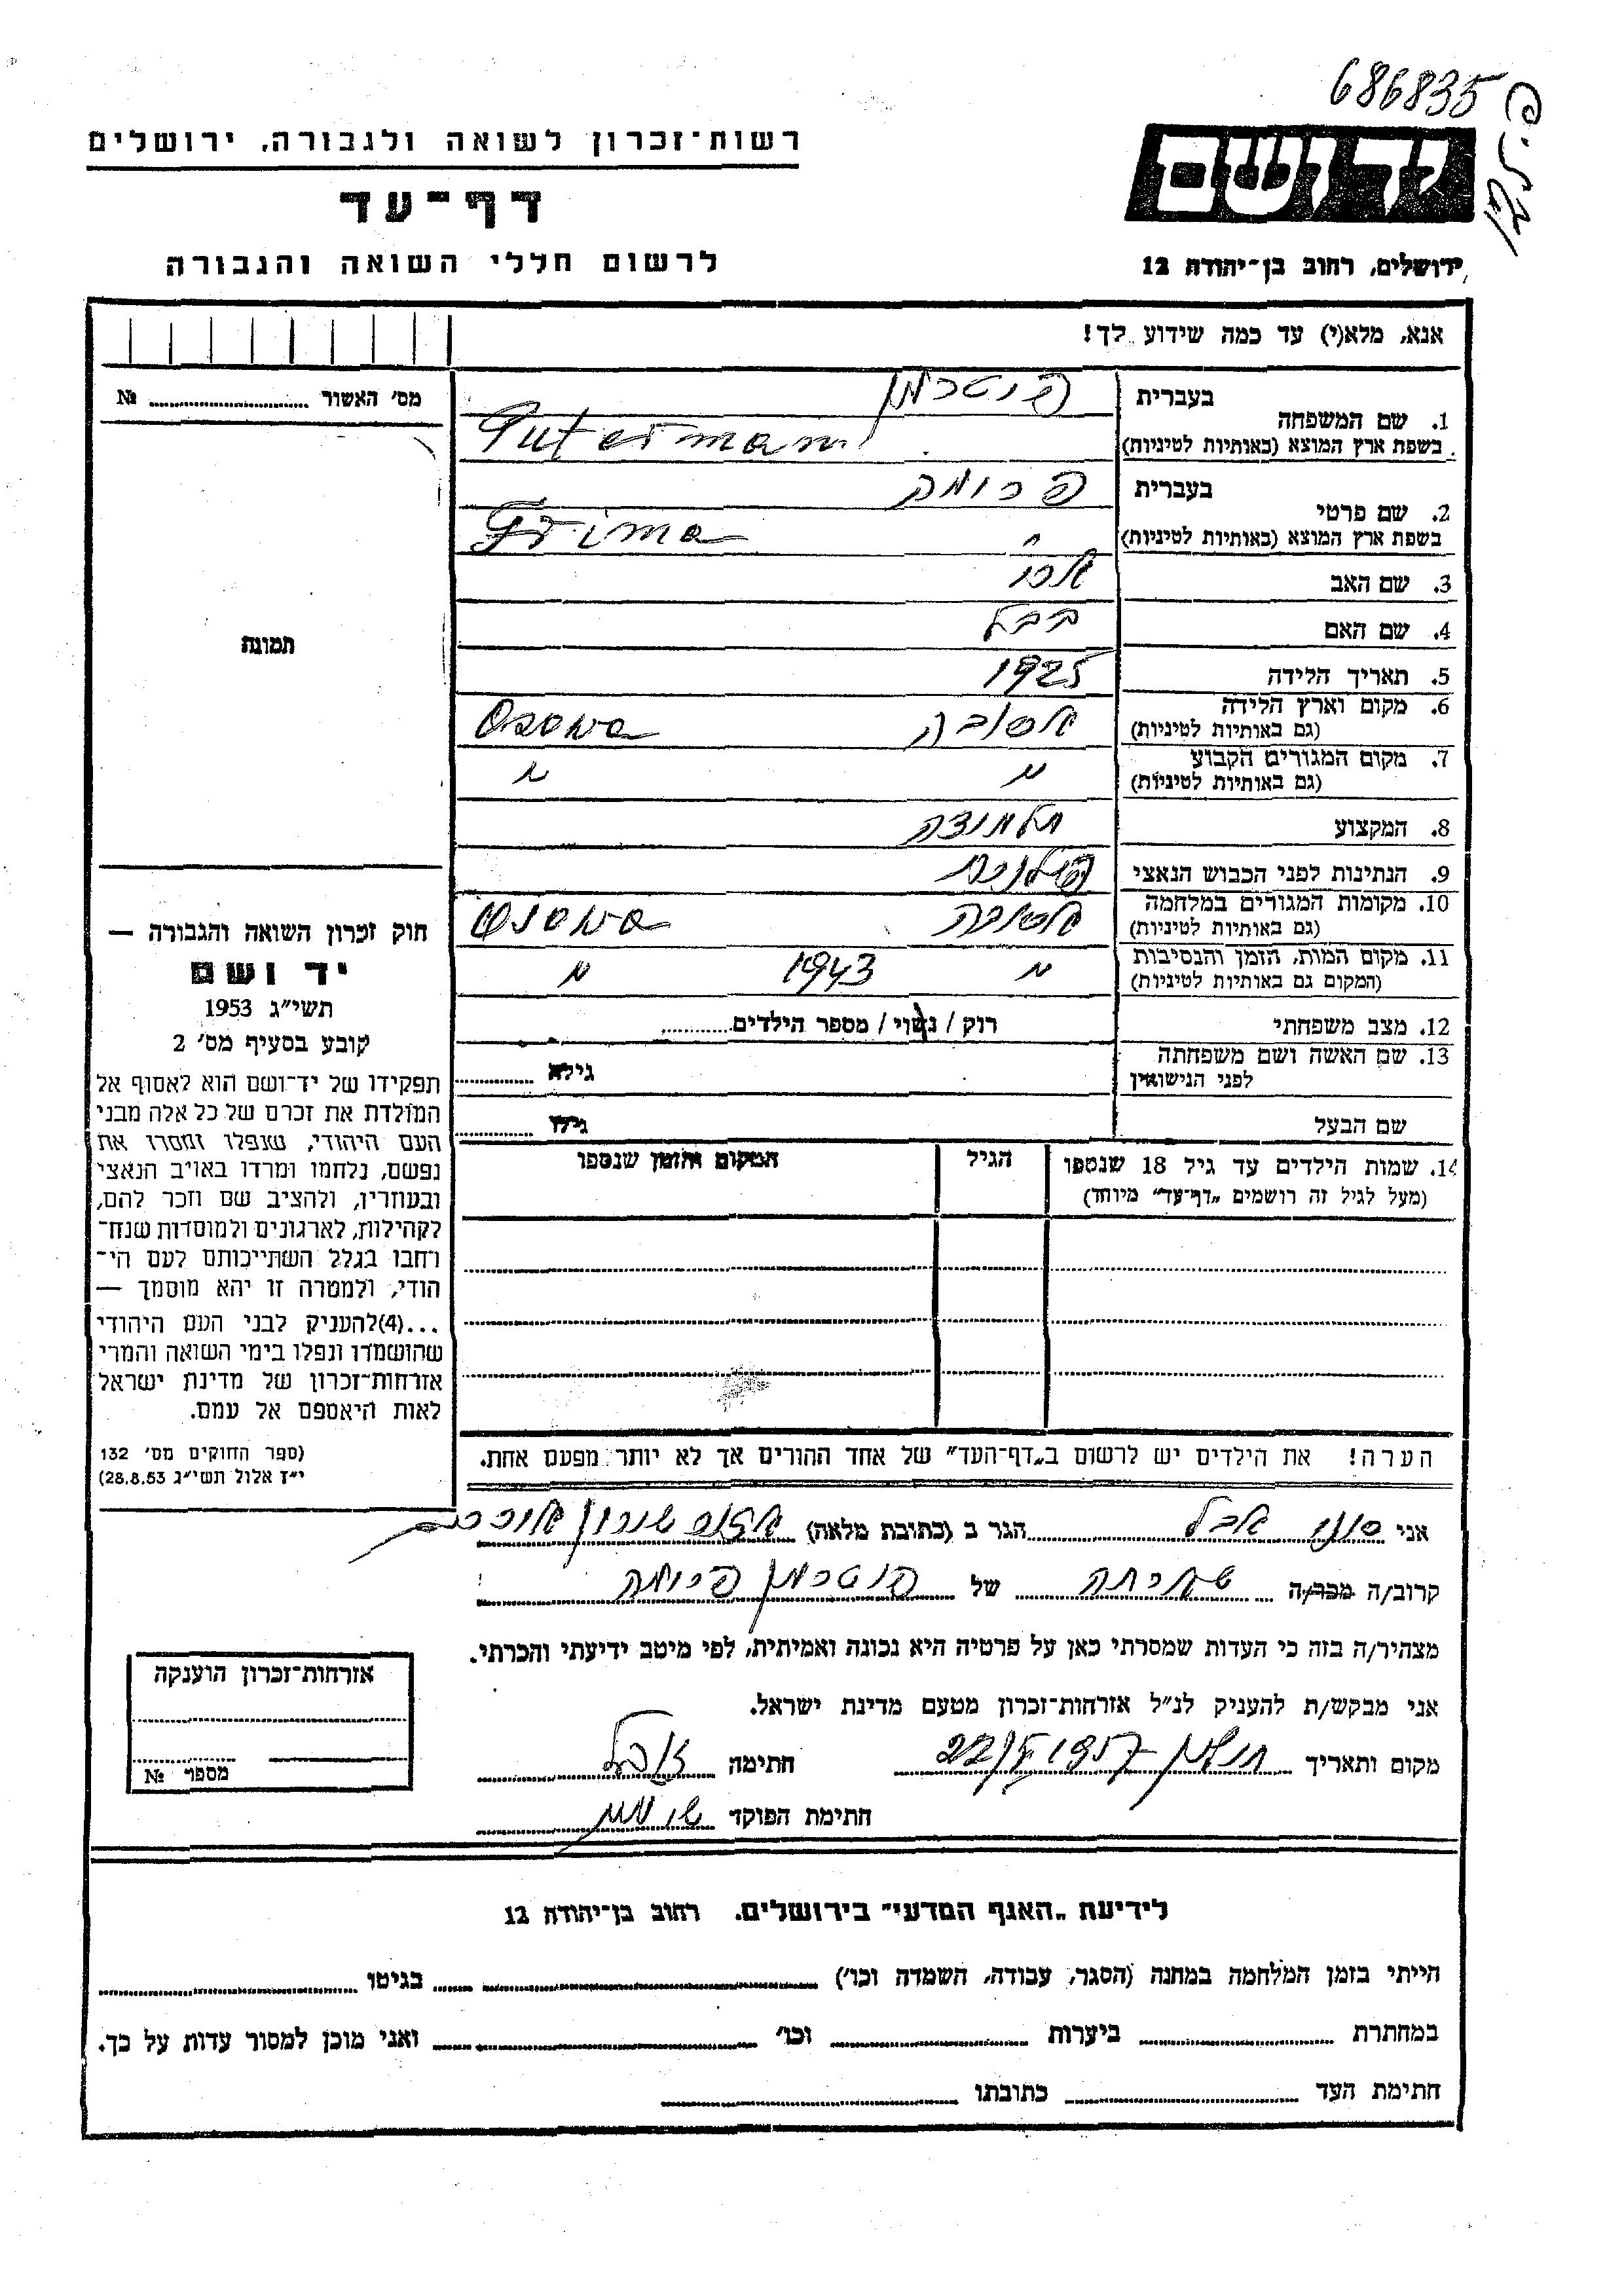 686835
רשות־זכרון לשואה ולגבורה, ירושלים
יד ושם
דף־עד
לרשום חללי השואה והגבורה
ירושלים, רחוב בן־יהודה 12
אנא, מלא(י) עד כמה שידוע לך!
מס׳ האשור № 
בעברית פוטרמן
1. שם המשפחה
בשפת ארץ המוצא (באותיות לטיניות) Puterman
בעברית פרומה
2. שם פרטי
בשפת ארץ המוצא (באותיות לטיניות) Frima
3. שם האב
4. שם האם
5. תאריך הלידה 1925
6. מקום וארץ הלידה אסובה Osowa
(גם באותיות לטיניות)
7. מקום המגורים הקבוע " "
(גם באותיות לטיניות)
8. המקצוע תלמידה
9. הנתינות לפני הכבוש הנאצי פולנית
10. מקומות המגורים במלחמה אסובה Osowa
(גם באותיות לטיניות)
11. מקום המות, הזמן והנסיבות " 1943 "
(המקום גם באותיות לטיניות)
12. מצב משפחתי רוק / נשוי / מספר הילדים
13. שם האשה ושם משפחתה
לפני הנישואין גילא
שם הבעל גילו
14. שמות הילדים עד גיל 18 שנספו הגיל המקום והזמן שנספו
(מעל לגיל זה רושמים „דף־עד” מיוחד)
הערה! את הילדים יש לרשום ב„דף־העד” של אחד ההורים אך לא יותר מפעם אחת.
תמונה
חוק זכרון השואה והגבורה —
יד ושם
תשי״ג 1953
קובע בסעיף מס׳ 2
תפקידו של יד־ושם הוא לאסוף אל
המולדת את זכרם של כל אלה מבני
העם היהודי, שנפלו ומסרו את
נפשם, נלחמו ומרדו באויב הנאצי
ובעוזריו, ולהציב שם וזכר להם,
לקהילות, לארגונים ולמוסדות שנח־
רחבו בגלל השתייכותם לעם הי־
הודי, ולמטרה זו יהא מוסמך —
...(4)להעניק לבני העם היהודי
שהושמדו ונפלו בימי השואה והמרי
אזרחות־זכרון של מדינת ישראל
לאות היאספם אל עמם.
(ספר החוקים מס׳ 132
י״ז אלול תשי״ג 28.8.53)
אני הגר ב (כתובת מלאה)
קרוב/ה מכר/ה של פוטרמן פרומה
מצהיר/ה בזה כי העדות שמסרתי כאן על פרטיה היא נכונה ואמיתית, לפי מיטב ידיעתי והכרתי.
אני מבקש/ת להעניק לנ״ל אזרחות־זכרון מטעם מדינת ישראל.
מקום ותאריך חולון 1957 חתימה
חתימת הפוקד
אזרחות־זכרון הוענקה
מספר №
לידיעת „האגף המדעי” בירושלים. רחוב בן־יהודה 12
הייתי בזמן המלחמה במחנה (הסגר, עבודה, השמדה וכו׳) בגיטו
במחתרת ביערות וכו׳ ואני מוכן למסור עדות על כך.
חתימת העד כתובתו